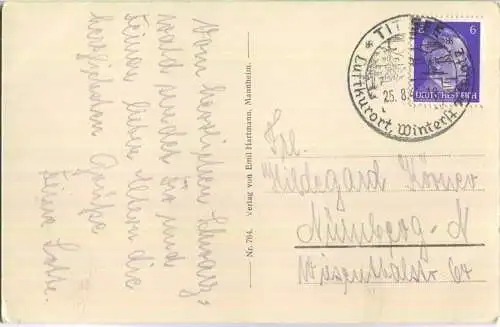 Vom herrlichen Schwarz=
wald sendet Dir und
Deinen lieben Eltern die
herzlichsten Grüße
Deine Lotte.
Nr. 764. Verlag von Emil Hartmann, Mannheim.
TITISEE
25.8.
Luftkurort, Winterst
6 6
DEUTSCHES REICH
Frl.
Hildegard Körner
Nürnberg-N
Wiesenthalstr 64